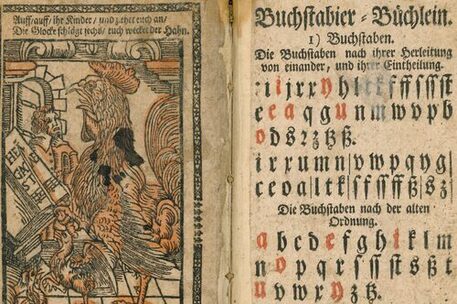 Auff/auff/ ihr Kinder/ und ziehet euch an/
Die Glocke schlägt sechs/ euch wecket der Hahn.
Buchstabier-Büchlein.
1) Buchstaben.
Die Buchstaben nach ihrer Herleitung
von einander, und ihrer Eintheilung.
r i j r x y h l t k f ff ſ ſſ ſt
c e a q g u n m w v p b
o d s r z tz ß.
i r x u m n v w p q y g
c e o a l t k ſ f ſſ ff ß s z
Die Buchstaben nach der alten
Ordnung.
a b c d e f g h i k l m
n o p q r ſ ſſ ſt s ß t
u v w x y z tz.